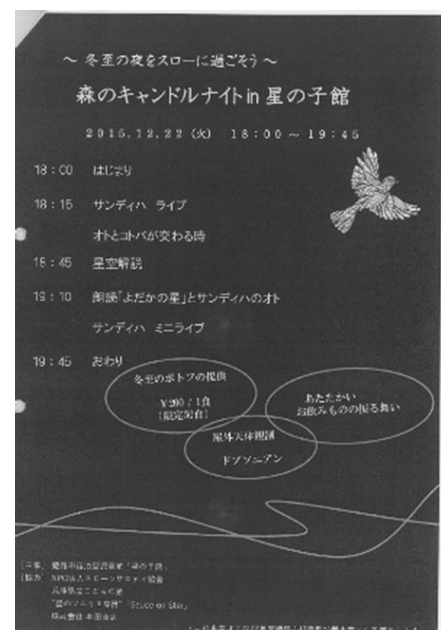 ～ 冬至の夜をスローに過ごそう ～
森のキャンドルナイト in 星の子館
2015.12.22 (火) 18:00 ～ 19:45
18:00 はじまり
18:15 サンディハ ライブ
オトとコトバが交わる時
18:45 星空解説
19:10 朗読「よだかの星」とサンディハのオト
サンディハ ミニライブ
19:45 おわり
冬至のポトフの提供
￥200 / 1食
(限定50食)
あたたかい
お飲みものの振る舞い
屋外天体観測
ドブソニアン
NPO法人スローソサエティ協会
"星のソムリエ®"
株式会社 本田商店